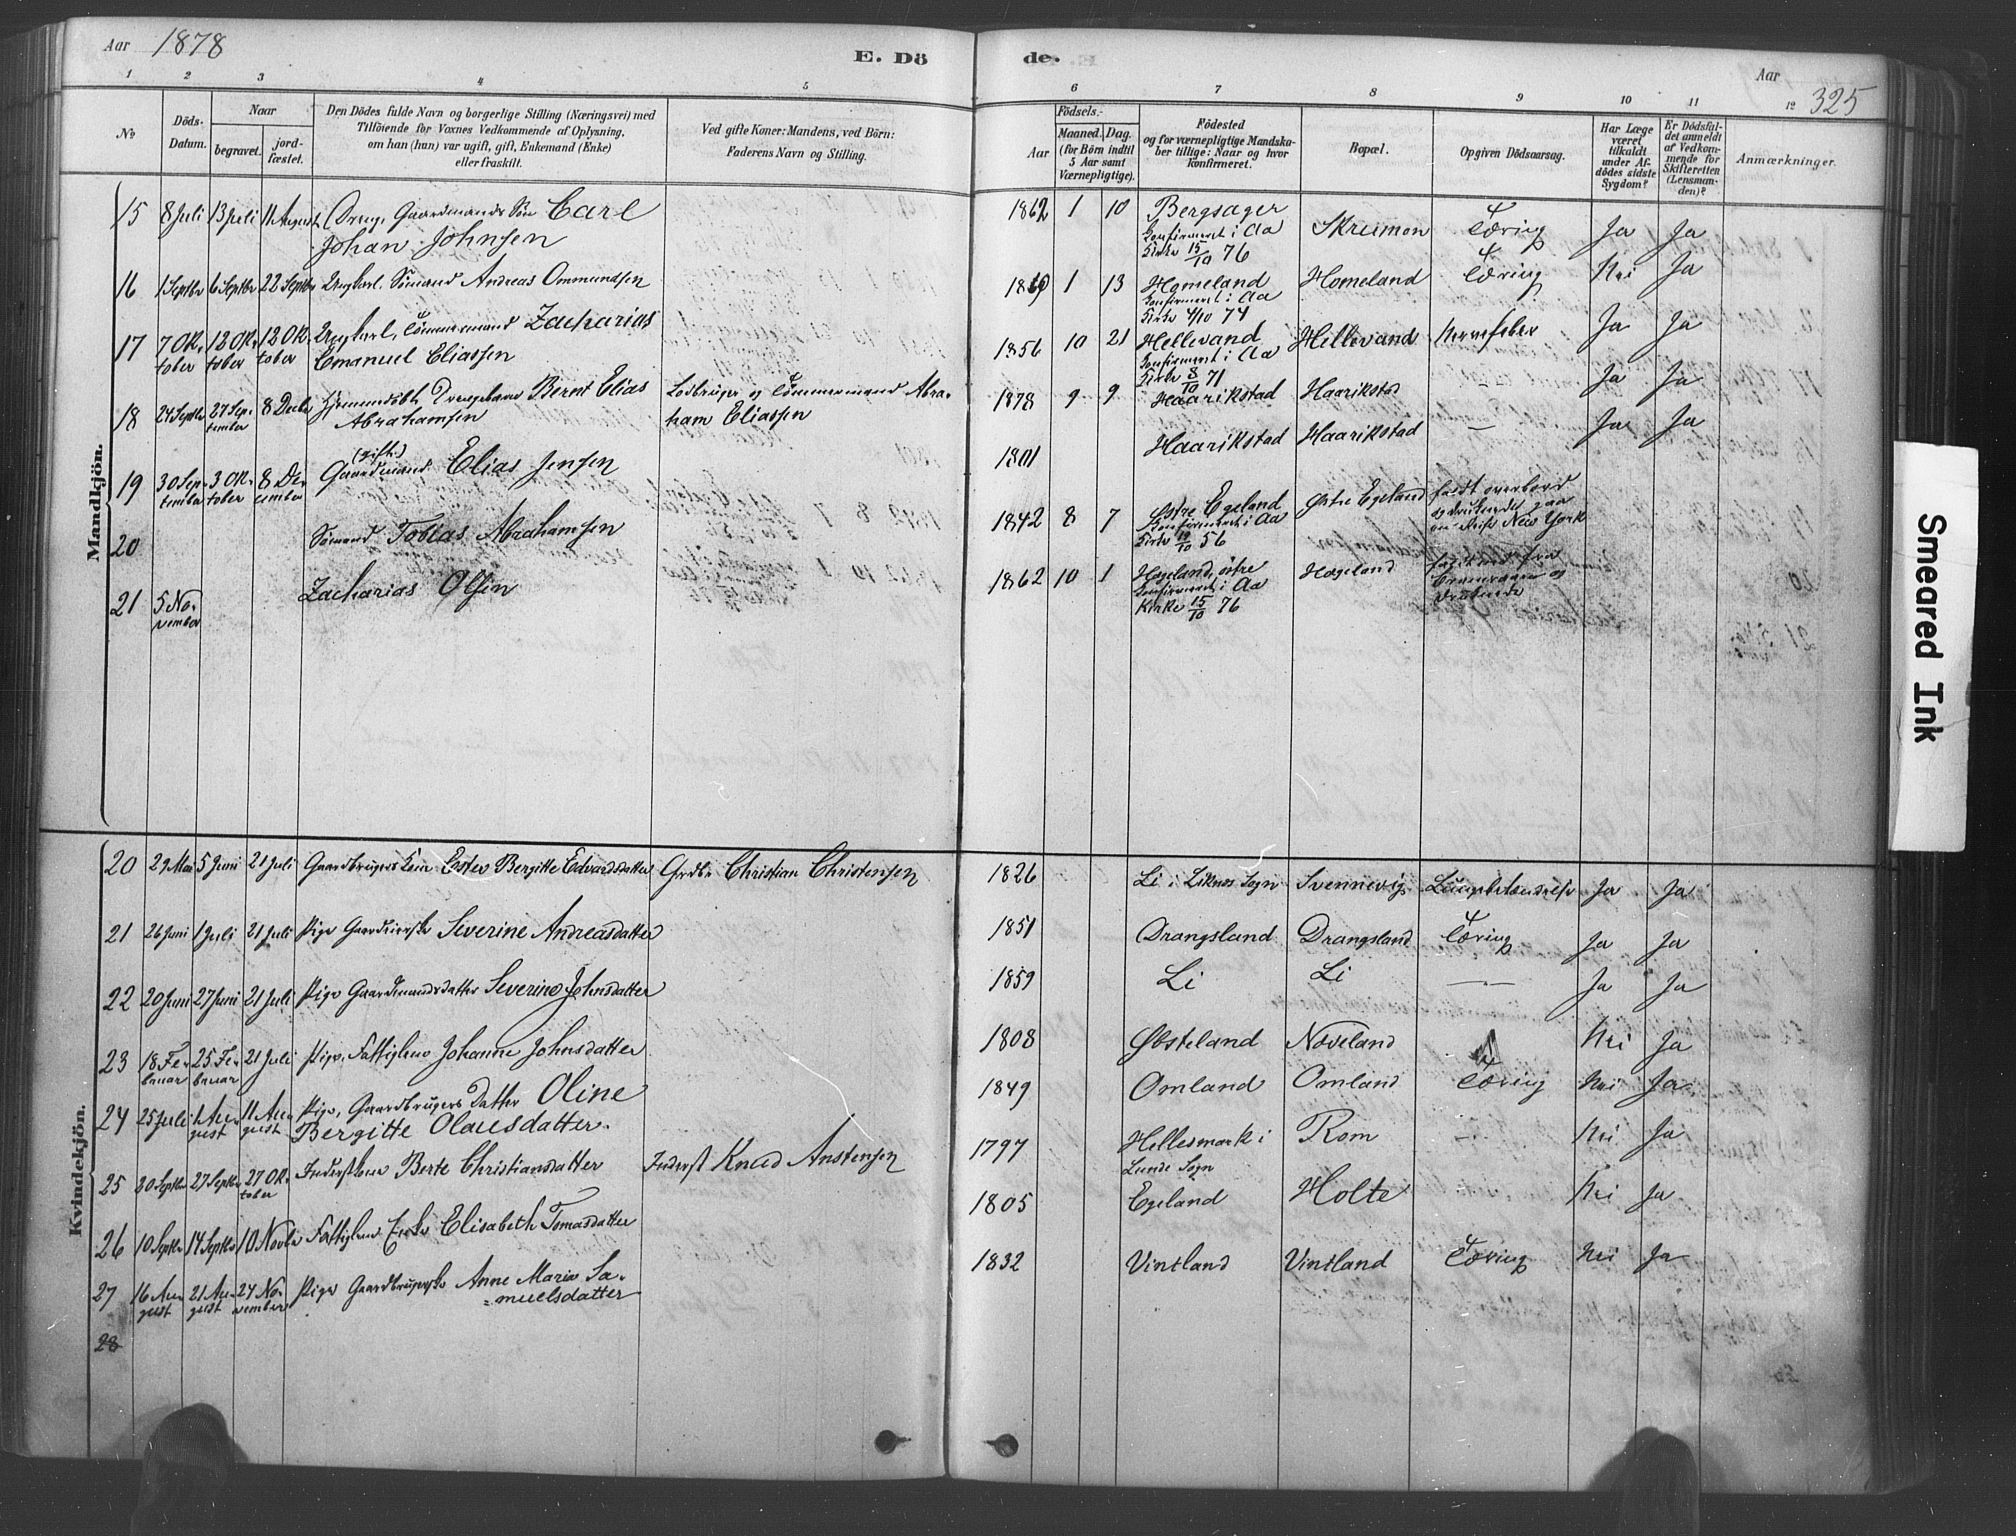 Aar 1878
E. Dö
de.
Aar
325
1 2 3 4 5 6 7 8 9 10 11 12
No
Döds-
Datum.
Naar
begravet.
jord-
fæstet.
Den Dödes fulde Navn og borgerlige Stilling (Næringsvei) med
Tilföiende for Voxnes Vedkommende af Oplysning,
om han (hun) var ugift, gift, Enkemand (Enke)
eller fraskilt.
Ved gifte Koner: Mandens, ved Börn:
Faderens Navn og Stilling.
Födsels-
Aar
Maaned. Dag.
(for Börn indtil
5 Aar samt
Værnepligtige).
Födested
og for værnepligtige Mandska-
ber tillige: Naar og hvor
konfirmeret.
Bopæl.
Opgiven Dödsaarsag.
Har Læge
været
tilkaldt
under Af-
dödes sidste
Sygdom?
Er Dödsfal-
det anmeldt
af Vedkom-
mende for
Skifteretten
(Lensman-
den)?
Anmærkninger.
Mandkjön.
15 8 Juli 13 Juli 11 August Gaardmands Søn Carl
Johan Johnsen
1862 1 10 Bergsager
Konfirmeret i Aa
Kirke 15/10 76
Skreimon Tæring Ja Ja
16 1 Septbr 6 Septbr 22 Septbr Ungkarl. Sømand Andreas Ommundsen
1 13 Homeland
Konfirmeret i Aa
Kirke 4/10 74
Homeland Tæring Nei Ja
17 7 Ok-
tober
12 Ok-
tober
12 Ok-
tober
Ungkarl, Tömmermand Zacharias
Emanuel Eliassen
1856 10 21 Hellevand
Konfirmeret i Aa
Kirke 8/10 71
Hellevand Nervefeber Ja Ja
18 24 Septbr 27 Sep-
tember
8 Decbr Hjemmedöbt Drengebarn Bernt Elias
Abrahamsen
Lodbruger og Tömmermand Abra-
ham Eliassen
1878 9 9 Haarikstad Haarikstad Ja Ja
19 30 Sep-
tember
3 Ok-
tober
8 De-
cember
(gift)
Gaardmand Elias Jensen
1801 Haarikstad Haarikstad — Ja Ja
20 Sømand Tobias Abrahamsen
1842 8 7 Østre Egeland
Konfirmeret i Aa
Kirke 19/10 56
Østre Egeland faldt overbord
og druknede paa
en Reise New York
21 5 No-
vember
Zacharias Olsen
1862 10 1 Høgeland, østre
Konfirmeret i Aa
Kirke 15/10 76
Høgeland
og
druknede
Kvindekjön.
20 29 Mai 5 Juni 21 Juli Gaardbrugers Kone Ester Bergitte Edvardsdatter Grdbr Christian Christensen
1826 Li i Liknes Sogn Svennevig Ja Ja
21 26 Juni 1 Juli 21 Juli Pige Severine Andreasdatter
1851 Drangsland Drangsland Tæring Ja Ja
22 20 Juni 27 Juni 21 Juli Pige Gaardmandsdatter Severine Johnsdatter
1859 Li Li — Ja Ja
23 18 Fe-
bruar
25 Fe-
bruar
21 Juli Pige, Fattiglem Johanne Johnsdatter
1808 Øbsteland Nøveland Nei Ja
24 25 Juli 1 Au-
gust
11 Au-
gust
Pige, Gaardbrugers Datter Oline
Bergitte Olausdatter.
1849 Omland Omland Tæring Nei Ja
25 20 Septbr 27 Septbr 27 Ok-
tober
Inderstkone Berte Christiansdatter Inderst Knud Anstensen
1797 Hellesmark i
Lunde Sogn
Rom — Nei Ja
26 10 Septbr 14 Septbr 10 Novbr Fattiglem Enke Elisabeth Tomasdatter
1805 Egeland Holte Nei Ja
27 16 Au-
gust
21 Au-
gust
24 No-
vember
Pige Anne Marie Sa-
muelsdatter
1832 Vintland Vintland Tæring Nei Ja
28
Smeared Ink